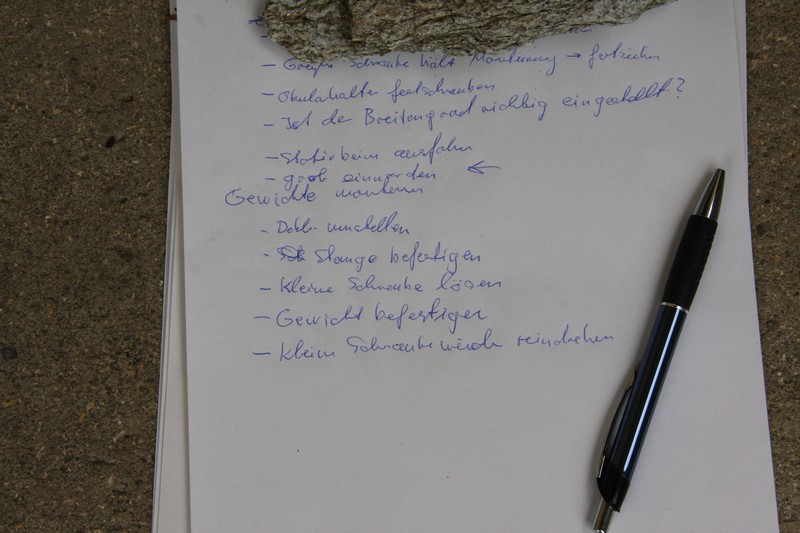 - Große Schraube hält Montierung → festziehen
- Okularhalter festschrauben
- Ist der Breitengrad richtig eingestellt?
- Stativbeine ausfahren
- grob einnorden ←
Gewichte montieren
- Dekl. umstellen
- Stange befestigen
- Kleine Schraube lösen
- Gewicht befestigen
- kleine Schraube wieder reindrehen